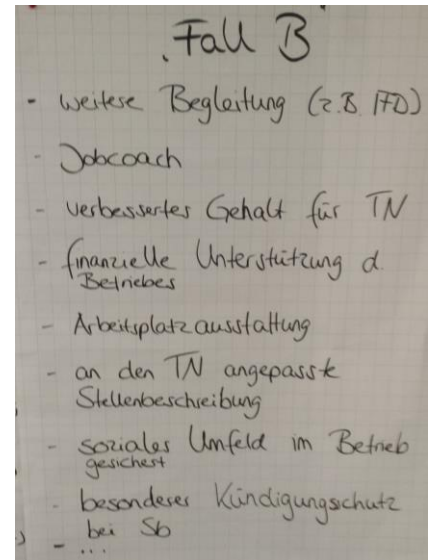 Fall B
- weitere Begleitung (z.B. IFD)
- Jobcoach
- verbessertes Gehalt für TN
- finanzielle Unterstützung d.
Betriebes
- Arbeitsplatzausstattung
- an den TN angepasste
Stellenbeschreibung
- soziales Umfeld im Betrieb
gesichert
- besonderer Kündigungsschutz
bei Sb
- ...